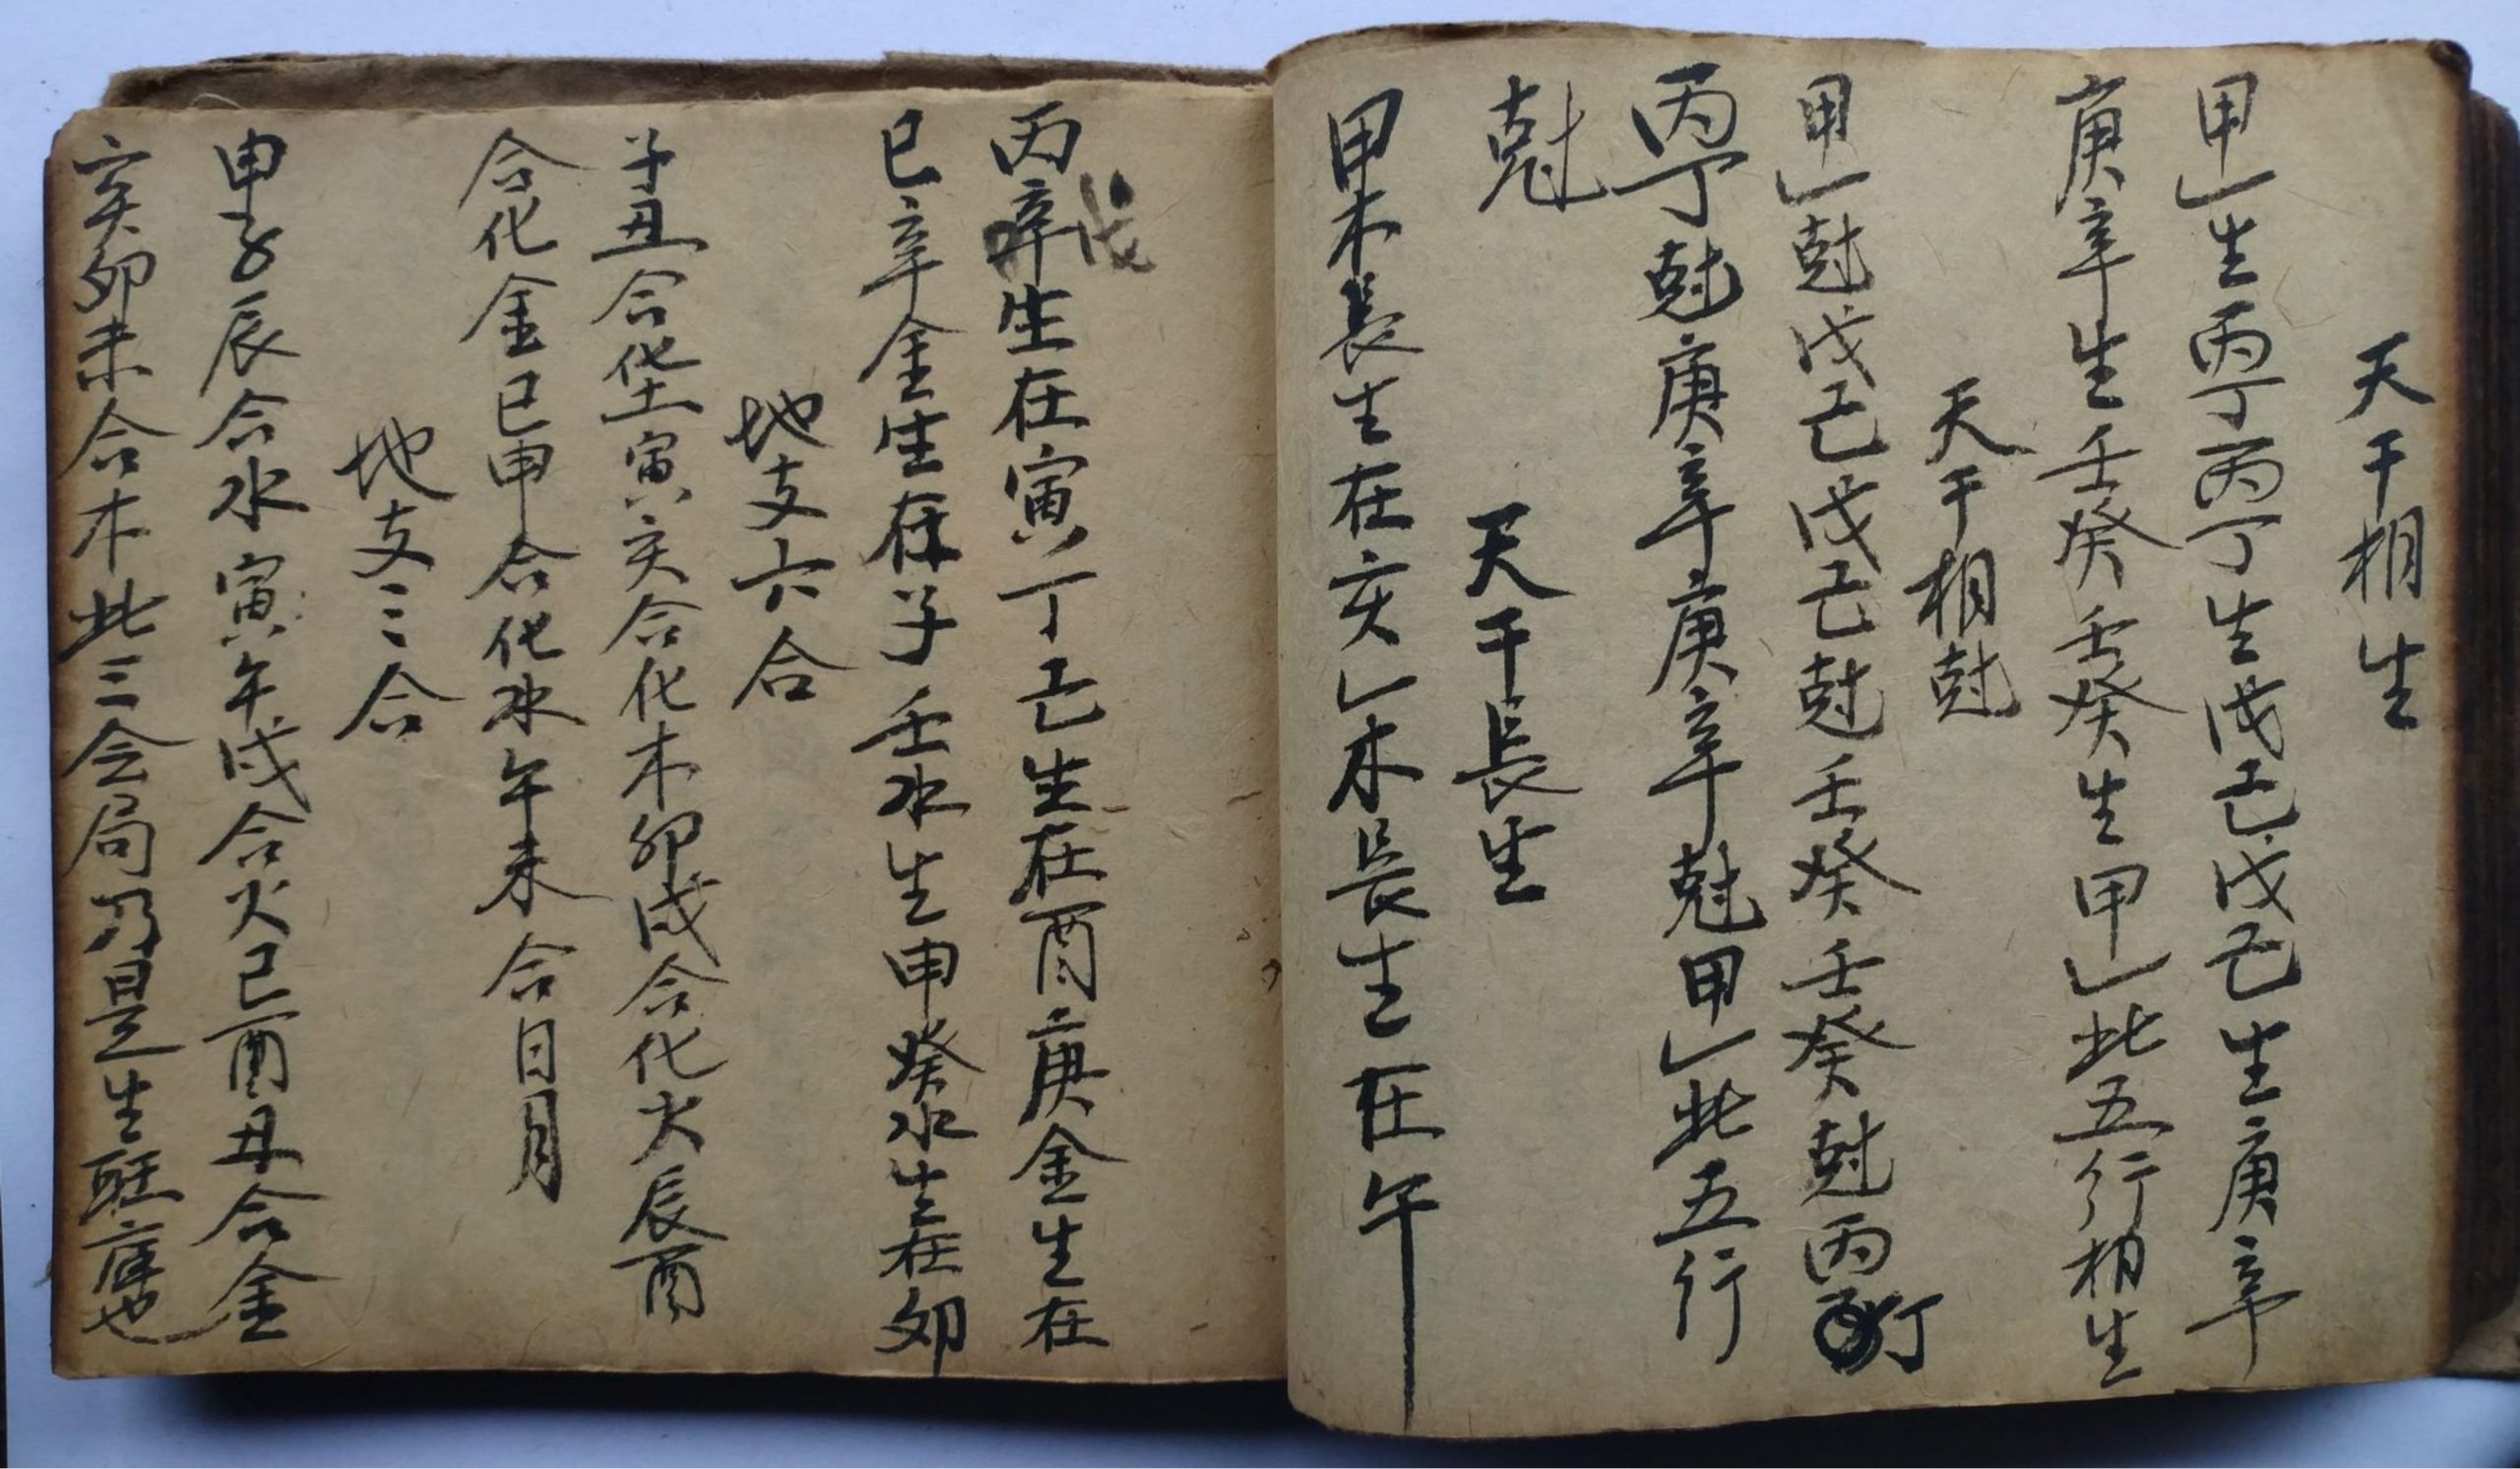 天干相生
甲乙生丙丁丙丁生戊己戊己生庚辛
庚辛生壬癸壬癸生甲乙此五行相生
天干相尅
甲乙尅戊己戊己尅壬癸壬癸尅丙丁
丙丁尅庚辛庚辛尅甲乙此五行
尅
天干長生
甲木長生在亥乙木長生在午
丙戊生在寅丁己生在酉庚金生在
巳辛金生在子壬水生申癸水生在卯
地支六合
子丑合化土寅亥合化木卯戌合化火辰酉
合化金巳申合化水午未合日月
地支三合
申子辰合水寅午戌合火巳酉丑合金
亥卯未合木此三合局乃是生旺庫也